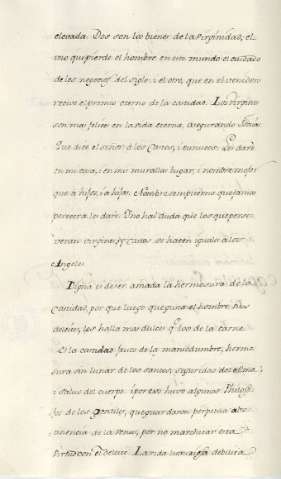 elevada. Dos son los bienes de la Virginidad, el
uno que pierde el hombre en este mundo el cuidado
de los negocios del siglo: i el otro, que en el venidero
recive el premio eterno de la castidad. Las Virgines
son mas felices en la vida eterna, asegurando
que dice el señor à los Castos, i eunucos: Les daré
en mi casa, i en mis murallas lugar, i nombre mejor
que à hijos, i a hijas. Nombre sempiterno que jamas
perecerà les daré. Uno hai duda que los que perse
veran virgines, y castos se hacen iguales à los
Angeles.
Digna es de ser amada la hermosura de la
Castidad, por que luego que gusta el hombre sus
delicias, les halla mas dulces que los de la carne.
Es la castidad fruto de la mansedumbre, hermo
sura sin lunar de los santos, seguridad del alma,
i salud del cuerpo. i por eso huvo algunos Philoso
fos de los gentiles, que guardaron perpetua abs
tinencia de la venus, por no manchar esta
virtud con el deleite. La vida debilita